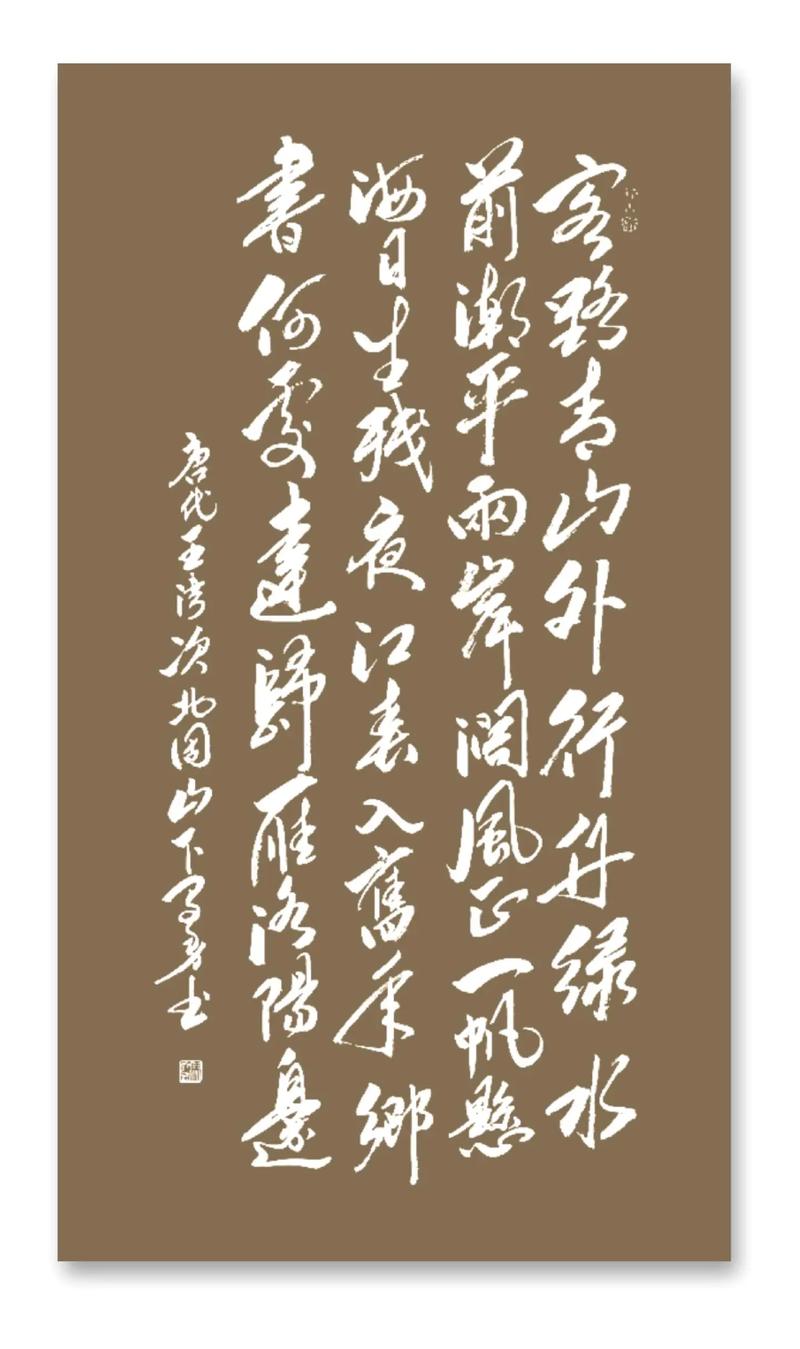 客路青山外行舟緑水
前潮平兩岸濶風正一帆懸
海日生残夜江春入舊年鄉
書何處達歸雁洛陽邊
唐代王湾次北固山下 书